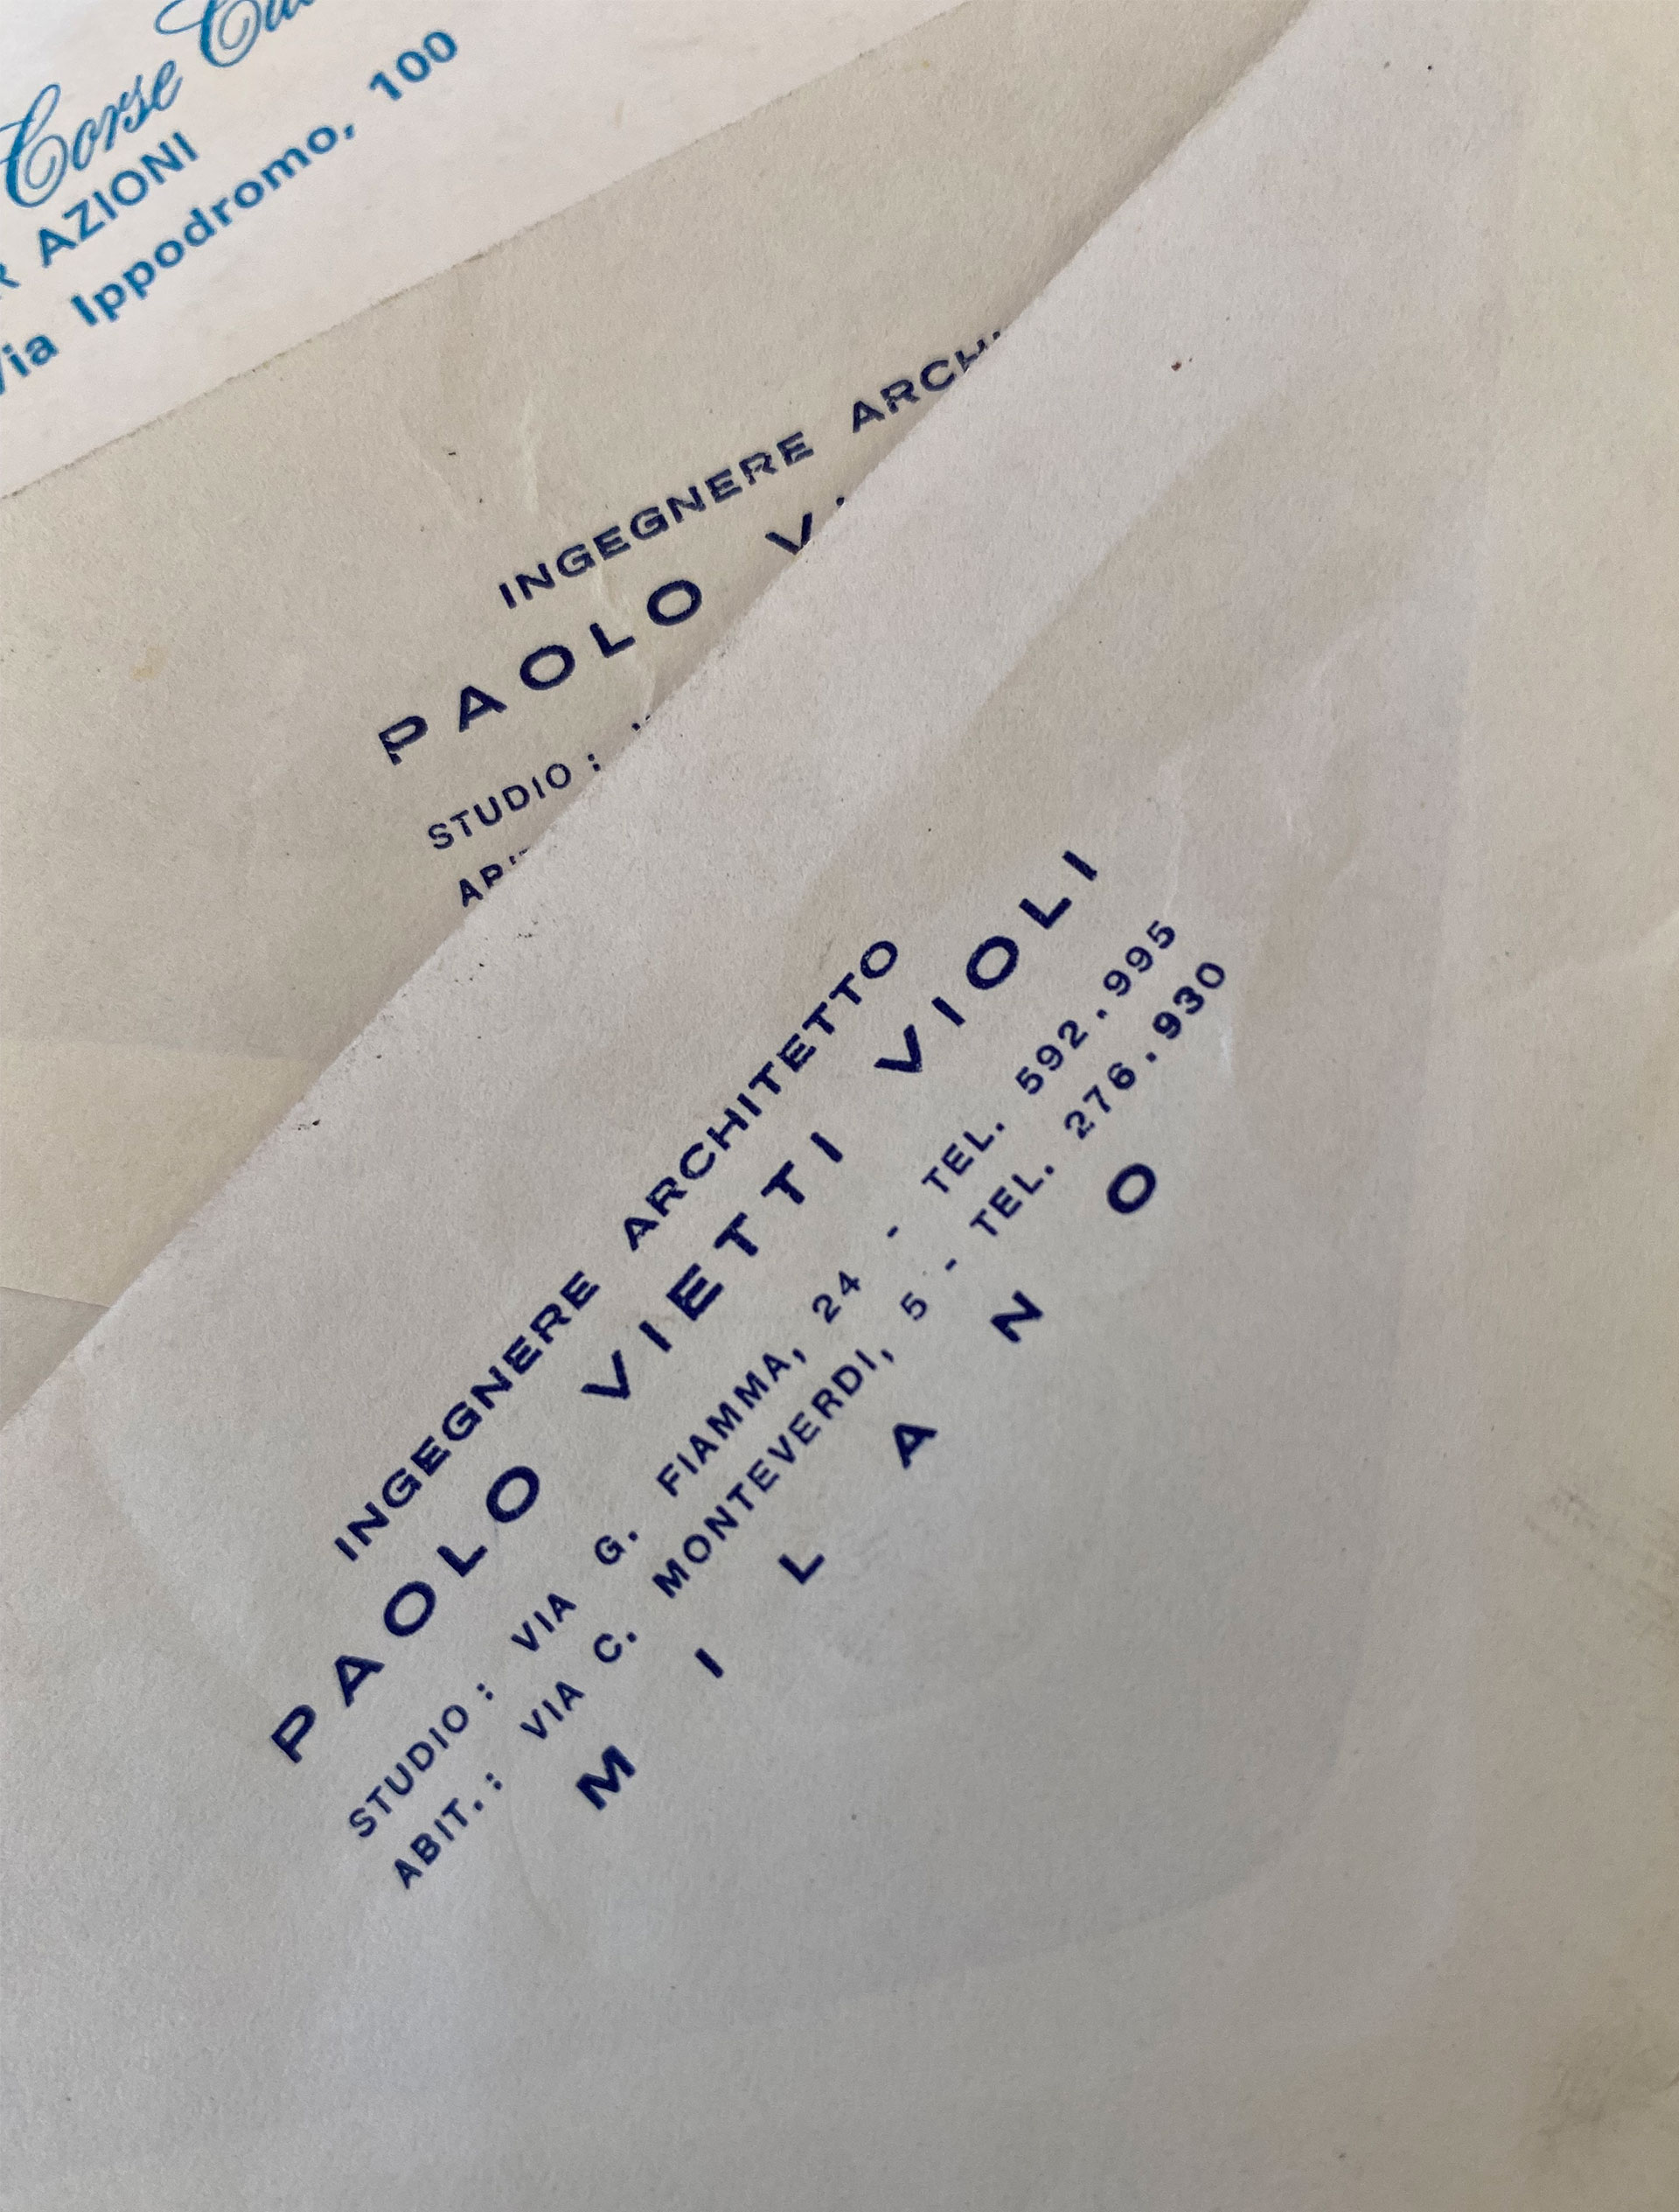 Corse
AZIONI
Via Ippodromo, 100
INGEGNERE
PAOLO
STUDIO :
INGEGNERE ARCHITETTO
PAOLO VIETTI VIOLI
STUDIO : VIA G. FIAMMA, 24 - TEL. 592.995
ABIT. : VIA C. MONTEVERDI, 5 - TEL. 276.930
MILANO